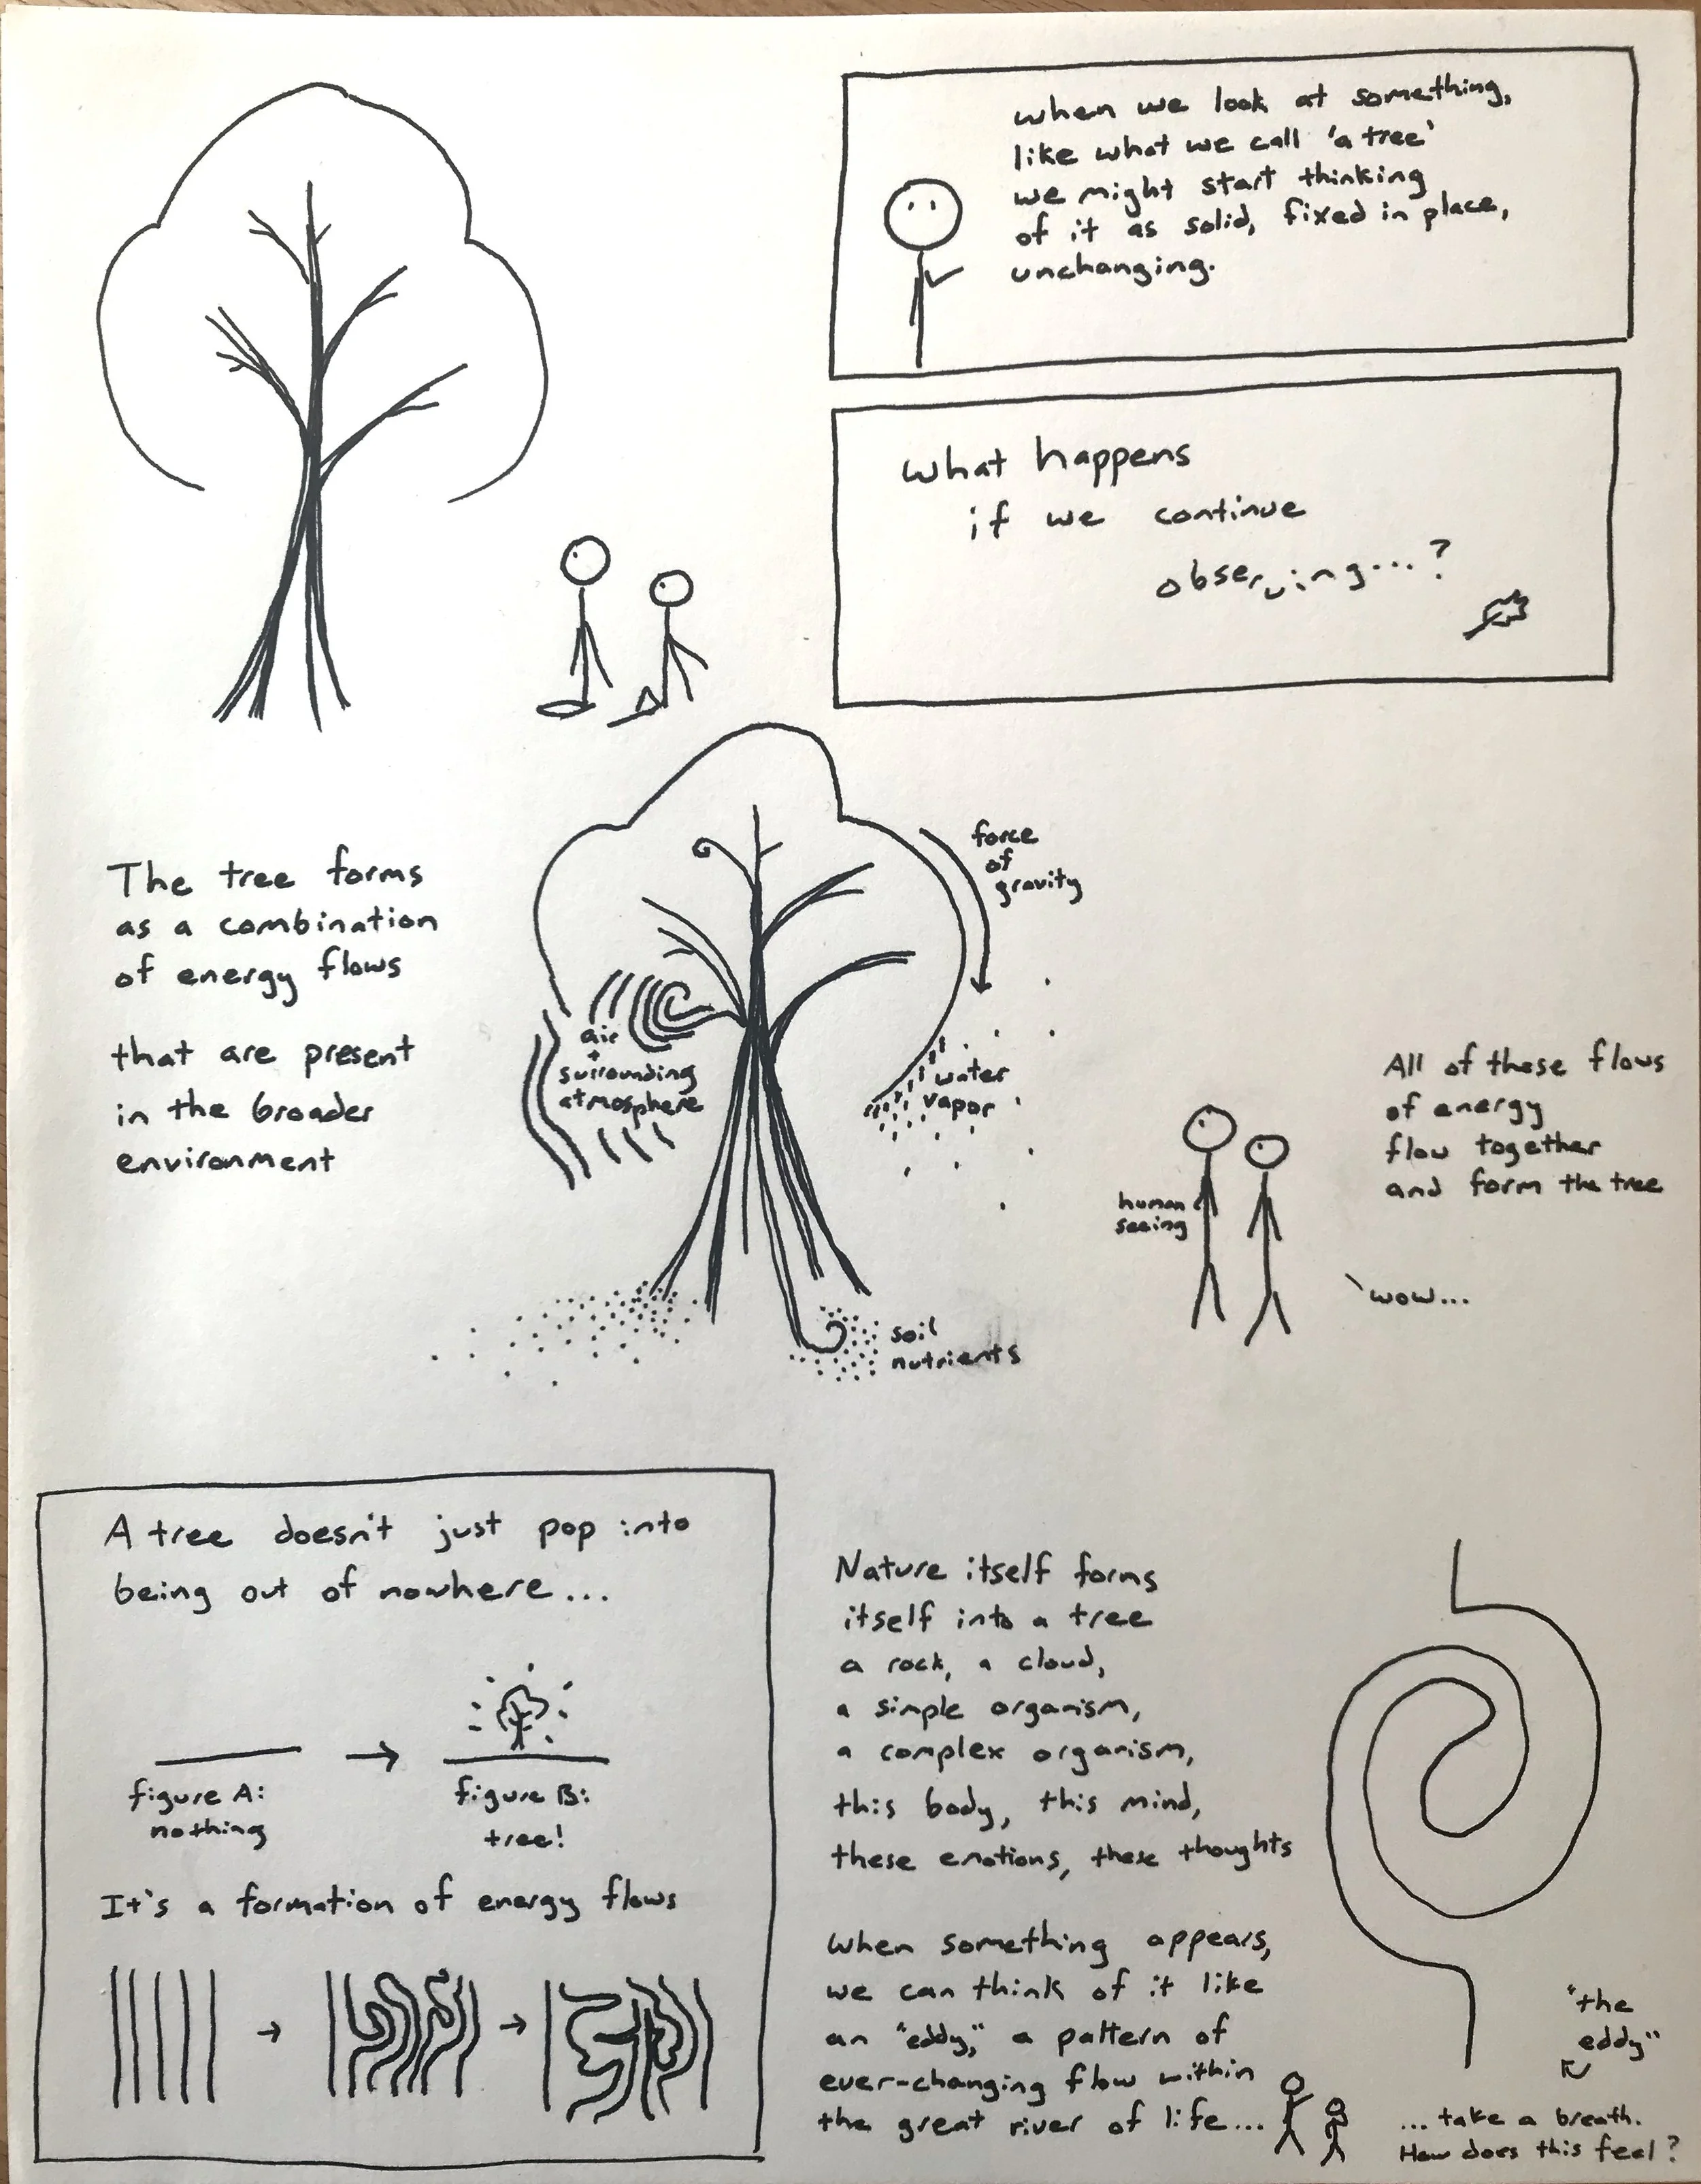 when we look at something,
like what we call 'a tree'
we might start thinking
of it as solid, fixed in place,
unchanging.
what happens
if we continue
observing...?
The tree forms
as a combination
of energy flows
that are present
in the broader
environment
force
of
gravity
air
+
surrounding
atmosphere
water
vapor
soil
nutrients
human
seeing
All of these flows
of energy
flow together
and form the tree
wow...
A tree doesn't just pop into
being out of nowhere...
figure A:
nothing
figure B:
tree!
It's a formation of energy flows
Nature itself forms
itself into a tree
a rock, a cloud,
a simple organism,
a complex organism,
this body, this mind,
these emotions, these thoughts
When something appears,
we can think of it like
an "eddy," a pattern of
ever-changing flow within
the great river of life...
"the
eddy"
...take a breath.
How does this feel?